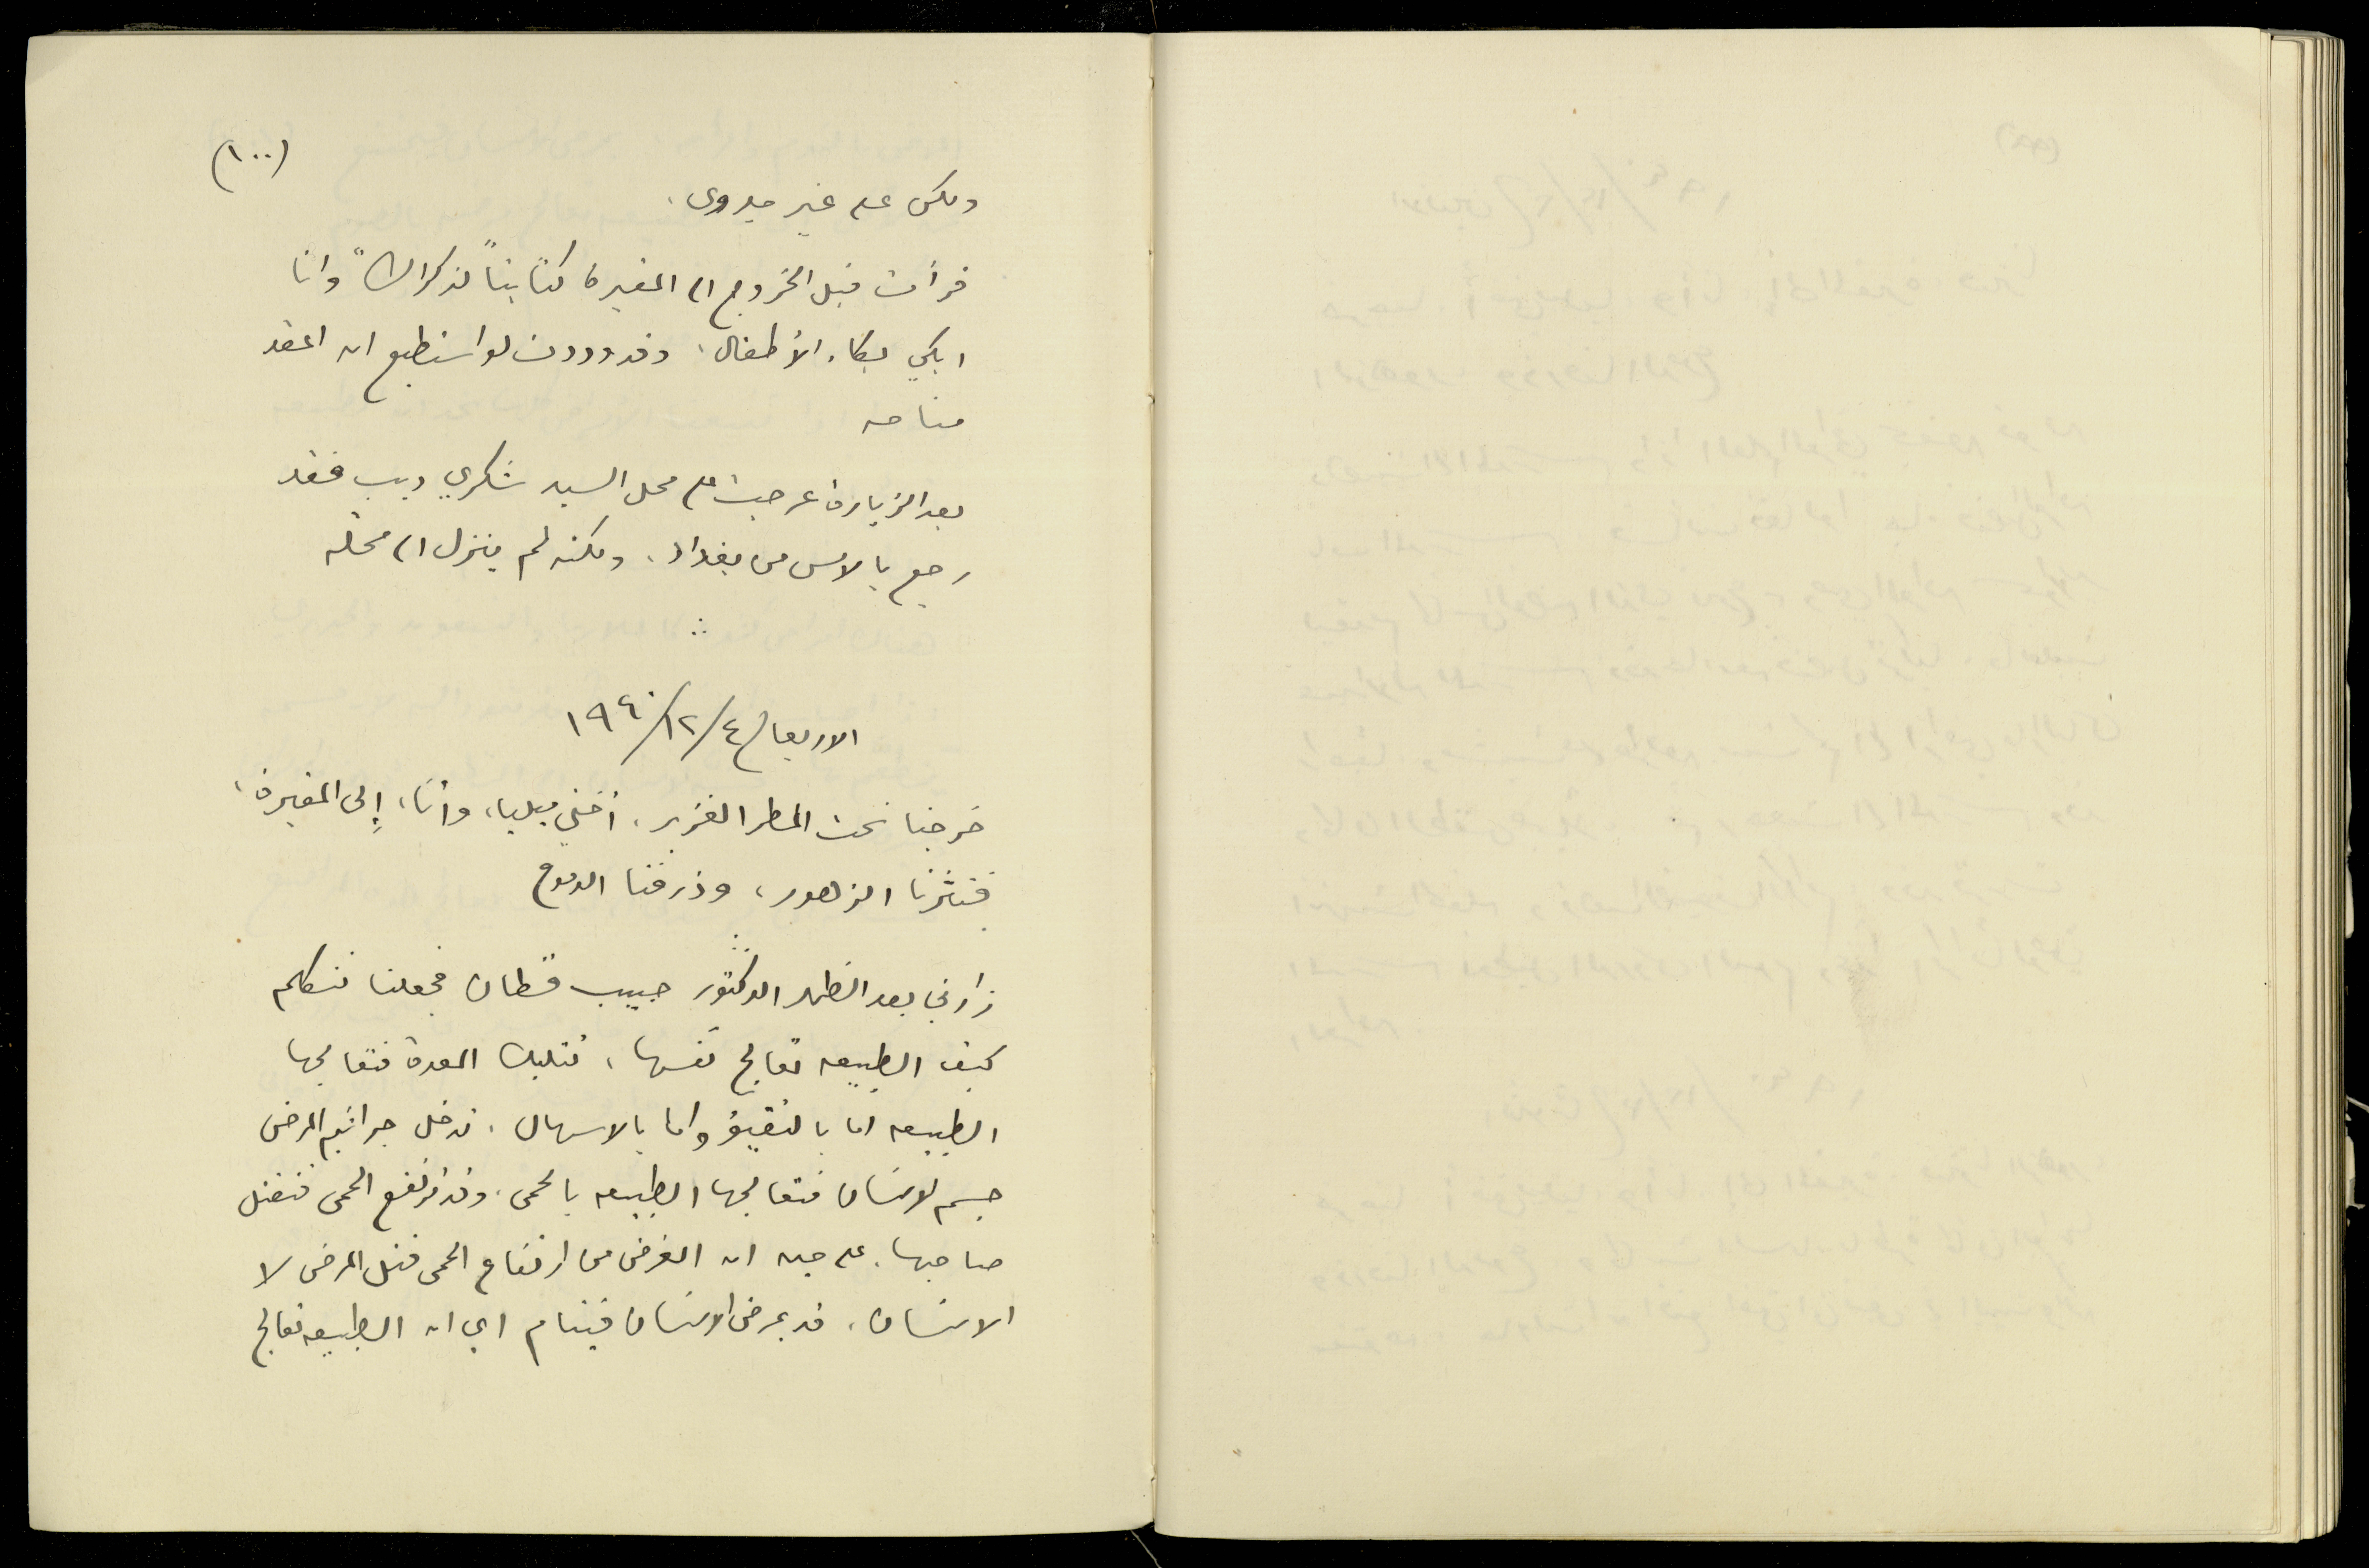 (١٠٠)
ولكن على غير جدوى.
قرأت قبل الخروج الى المقبرة كتابنا "لذكراك" وانا
ابكي بكاء الأطفال، وقد وددت لو استطيع ان اعقد
مناحه
بعد الزيارة عرجت على محل السيد شكري ديب فقد
رجع بالامس من بغداد، ولكنه لم ينزل الى محله
الاربعا ٤/١٢/١٩٤٠
خرجنا تحت المطر الغزير، أختي ميليا، وأنا، إلى المقبرة،
فنثرنا الزهور، وذرفنا الدموع
زارني بعد الظهر الدكتور حبيب قطان فجعلنا نتكلم
كيف الطبيعه تعالج نفسها، تتلبك المعدة فتعالجها
الطبيعه اما بالتقيؤ واما بالاسهال، تدخل جراثيم المرض
جسم الانسان فتعالجها الطبيعه بالحمى، وقد ترتفع الحمى فتقتل
صاحبها، على حين ان الغرض من ارتفاع الحمى قتل المرض لا
الانسان، قد يمرض الانسان فينام اي ان الطبيعه تعالج